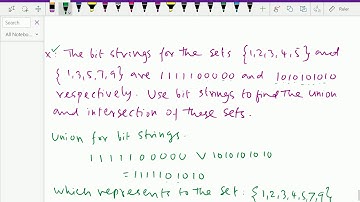 Search
All Notebo...
Pen
Ruler
x✓ The bit strings for the sets {1,2,3,4,5} and
{1,3,5,7,9} are 1111100000 and 1010101010
respectively. Use bit strings to find the union
and intersection of these sets.
Union for bit strings.
1111100000 ∨ 1010101010
= 1111101010
which represents to the set: {1,2,3,4,5,7,9}